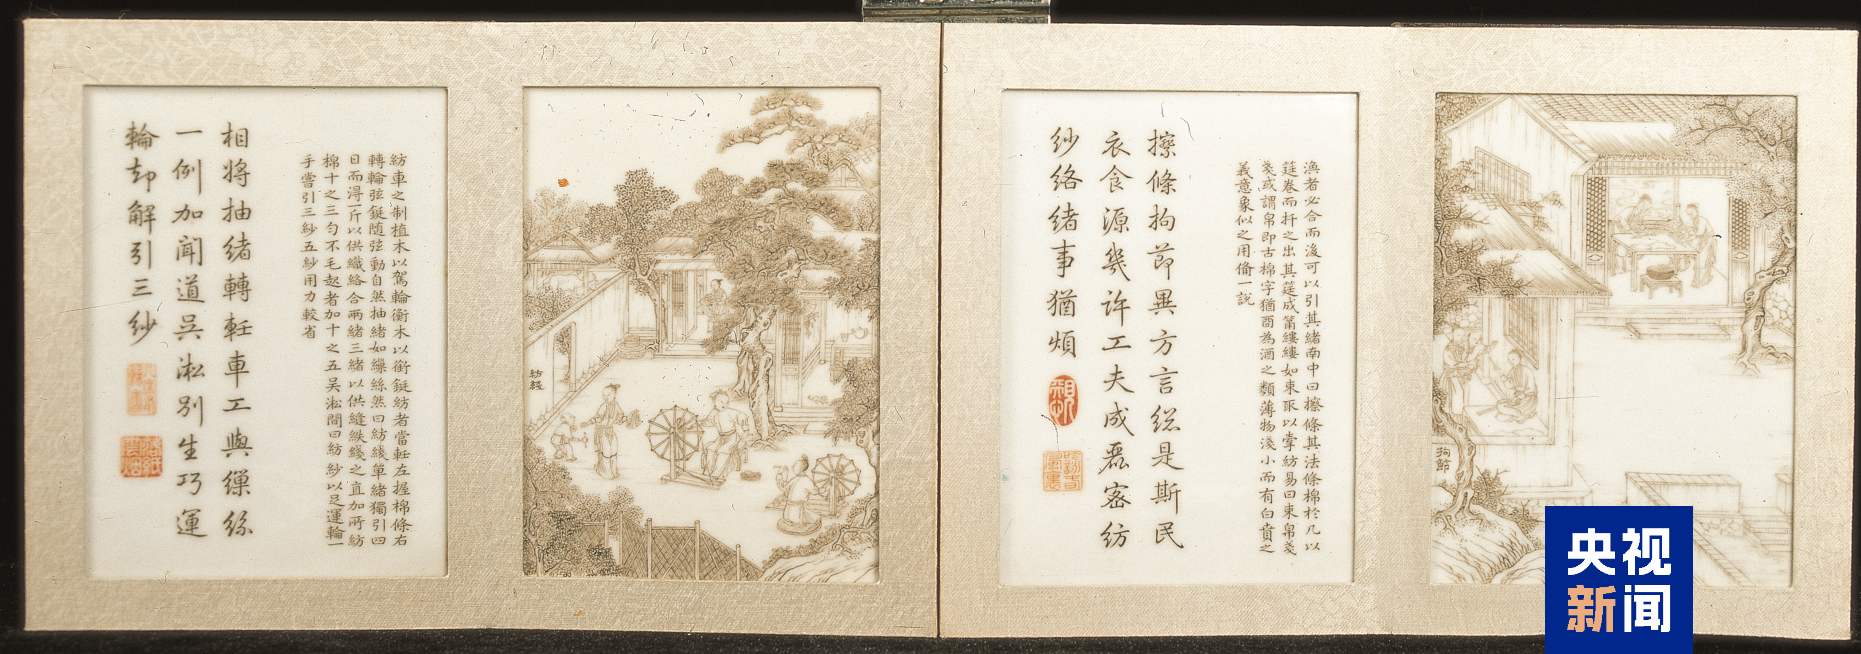 漁者必合而後可以引其緒南中曰擦條其法條棉於几以
筳卷而扞之出其筳成筩縷縷如束取以牽紡易曰束帛戔
戔或謂帛即古棉字猶酉為酒之類薄物淺小而有白賁之
義意象似之用備一說
擦條拘節異方言總是斯民
衣食源幾許工夫成氎密紡
紗絡緒事猶煩
拘節
紡車之制植木以駕輪衡木以銜鋌紡者當軠左握棉條右
轉輪弦鋌隨弦動自然抽緒如繅絲然曰紡綫單緒獨引四
日而得一斤以供織絡合兩緒三緒以供縫紩綫之直加所紡
棉十之三勻不毛起者加十之五吳淞間曰紡紗以足運輪一
手嘗引三紗五紗用力較省
相將抽緒轉軠車工與繅絲
一例加聞道吳淞別生巧運
輪却解引三紗
紡綫
央视
新闻